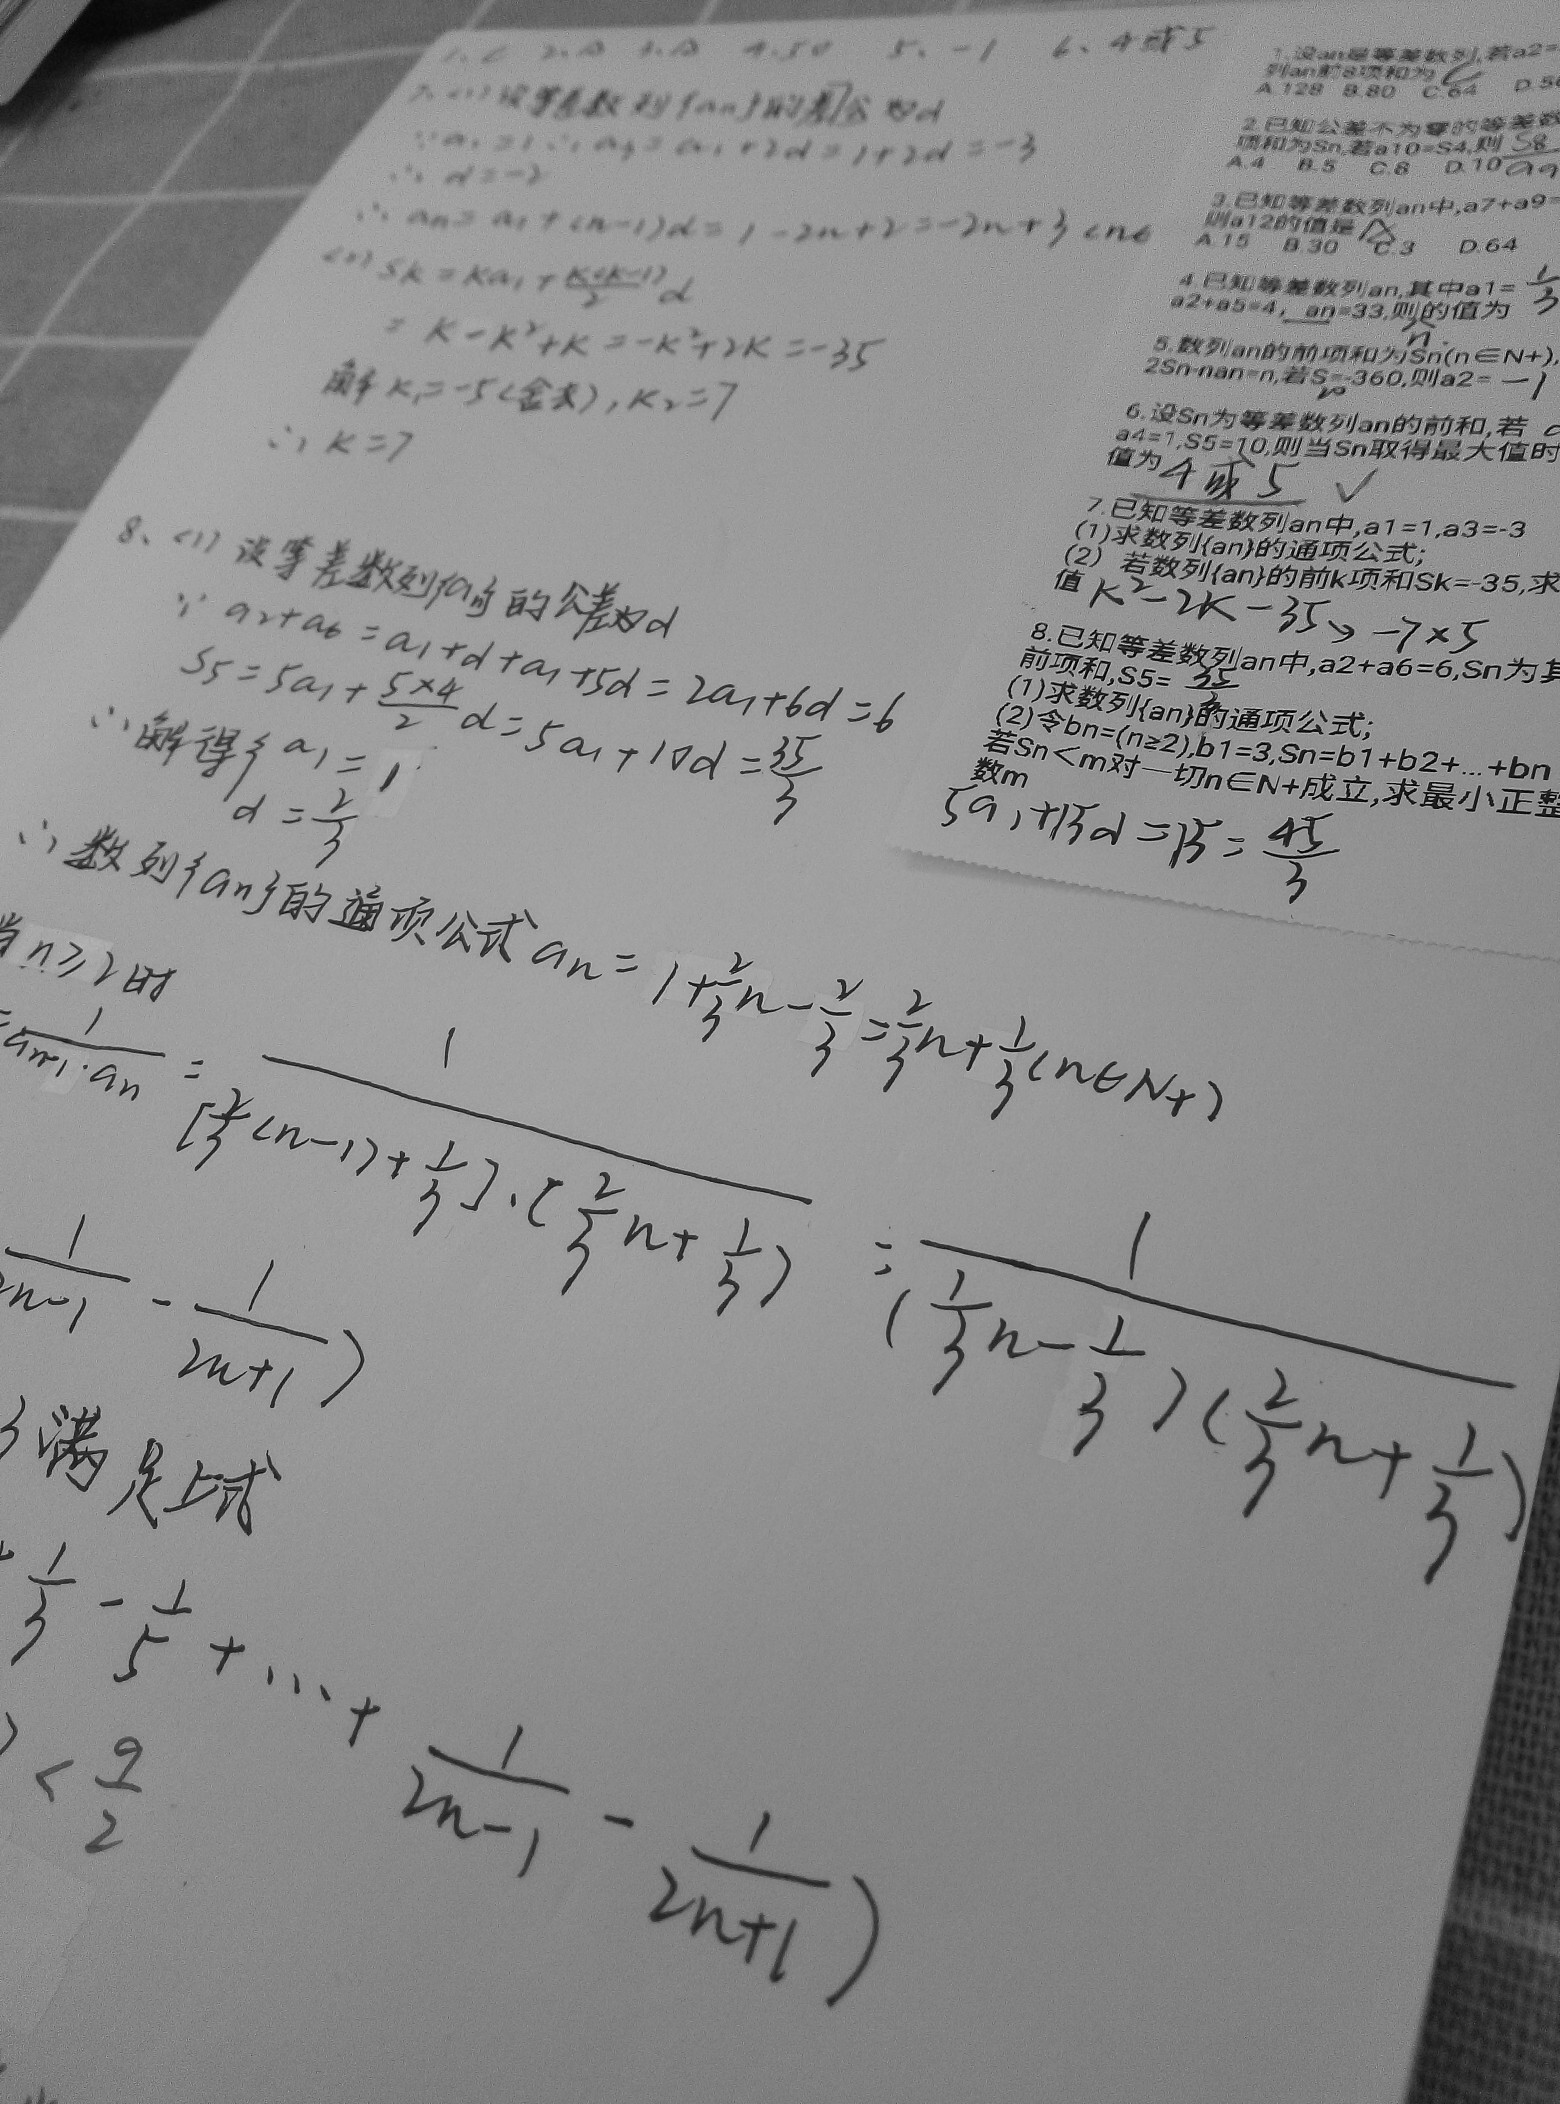 1、C 2、A 3、A 4.50 5、-1 6、4或5
7、(1)设等差数列{an}的公差为d
∵a1=1∴a3=a1+2d=1+2d=-3
∴d=-2
∴an=a1+(n-1)d=1-2n+2=-2n+3(n∈
(2)Sk=ka1+k(k-1)/2 d
=k-k²+k=-k²+2k=-35
解k1=-5(舍去),k2=7
∴k=7
8、(1)设等差数列{an}的公差为d
∵a2+a6=a1+d+a1+5d=2a1+6d=6
S5=5a1+5×4/2 d=5a1+10d=35/3
∴解得{a1=1
d=2/3
∴数列{an}的通项公式an=1+2/3n-2/3=2/3n+1/3(n∈N+)
当n≥2时
=1/(an-1·an)=1/([2/3(n-1)+1/3]·(2/3n+1/3))=1/((1/3n-1/3)(2/3n+1/3))
1/(2n-1)-1/(2n+1))
3满足上式
+1/3-1/5+…+1/(2n-1)-1/(2n+1))
)<9/2
1.设an是等差数列,若a2=
列an前8项和为 C
A.128 B.80 C.64 D.56
2.已知公差不为零的等差数
项和为Sn,若a10=S4,则S8/a9
A.4 B.5 C.8 D.10
3.已知等差数列an中,a7+a9=
则a12的值是 A
A.15 B.30 C.3 D.64
4.已知等差数列an,其中a1=1/3
a2+a5=4, an=33,则的值为
n.
5.数列an的前项和为Sn(n∈N+),
2Sn-nan=n,若S=-360,则a2= -1
20
6.设Sn为等差数列an的前和,若
a4=1,S5=10,则当Sn取得最大值时
值为 4或5 ✓
7.已知等差数列an中,a1=1,a3=-3
(1)求数列{an}的通项公式;
(2) 若数列{an}的前k项和Sk=-35,求
值 k²-2k-35→-7×5
8.已知等差数列an中,a2+a6=6,Sn为其
前项和,S5=35/3
(1)求数列{an}的通项公式;
(2)令bn=(n≥2),b1=3,Sn=b1+b2+…+bn
若Sn<m对一切n∈N+成立,求最小正整
数m
5a1+15d=15=45/3